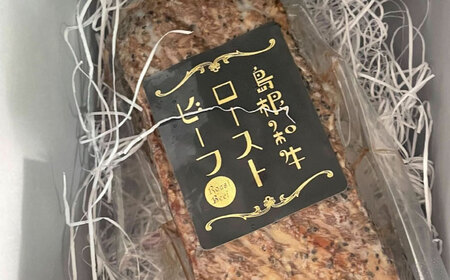 島根の和牛
ロースト
ビーフ
Roast
Beef